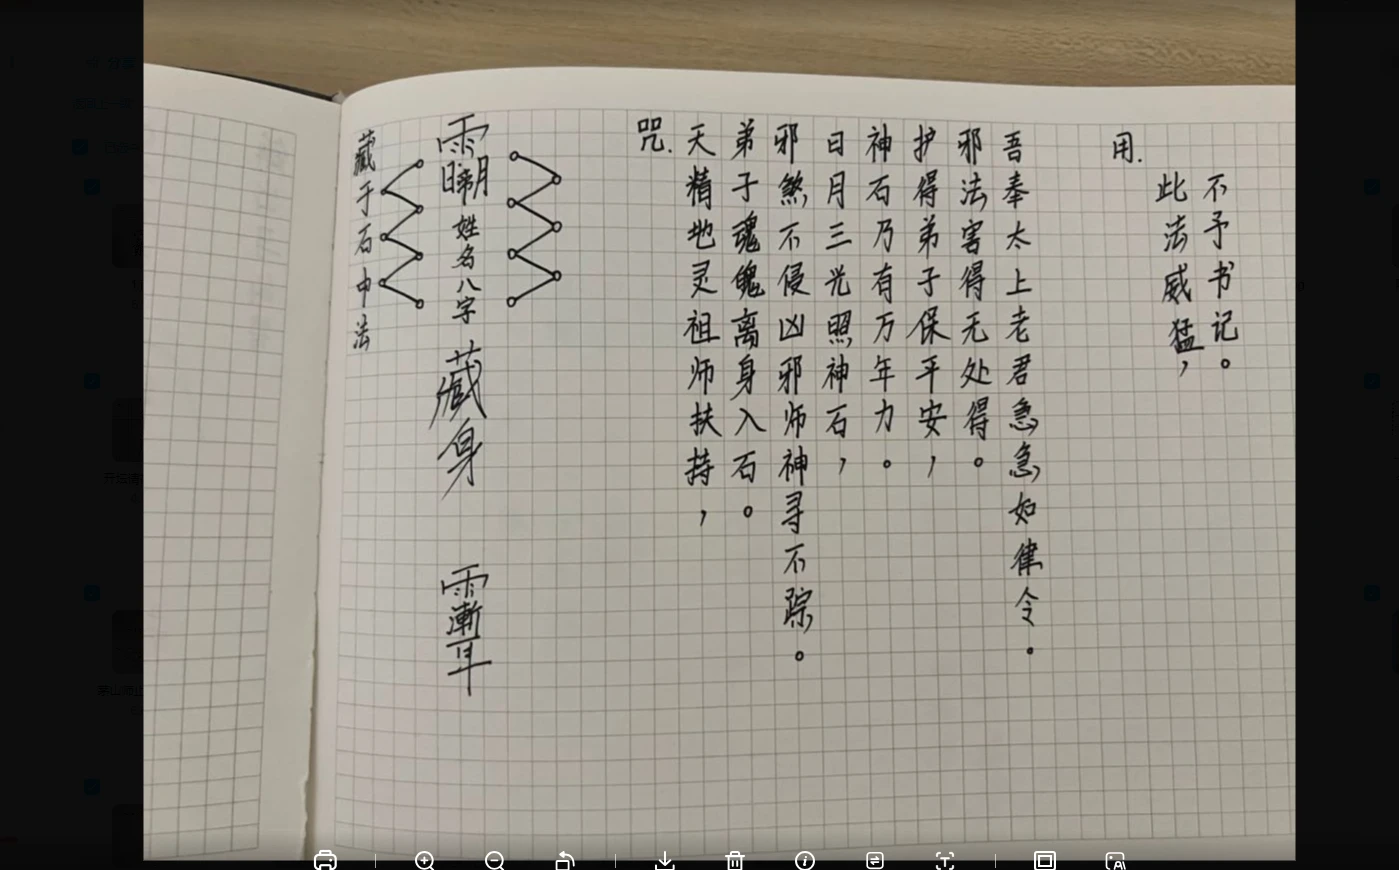 藏于石中法
姓名八字
藏身
咒.
天精地灵祖师扶持，
弟子魂魄离身入石。
邪煞不侵凶邪师神寻不踪。
日月三光照神石，
神石乃有万年力。
护得弟子保平安，
邪法害得无处得。
吾奉太上老君急急如律令.
用.
此法威猛，
不予书记。